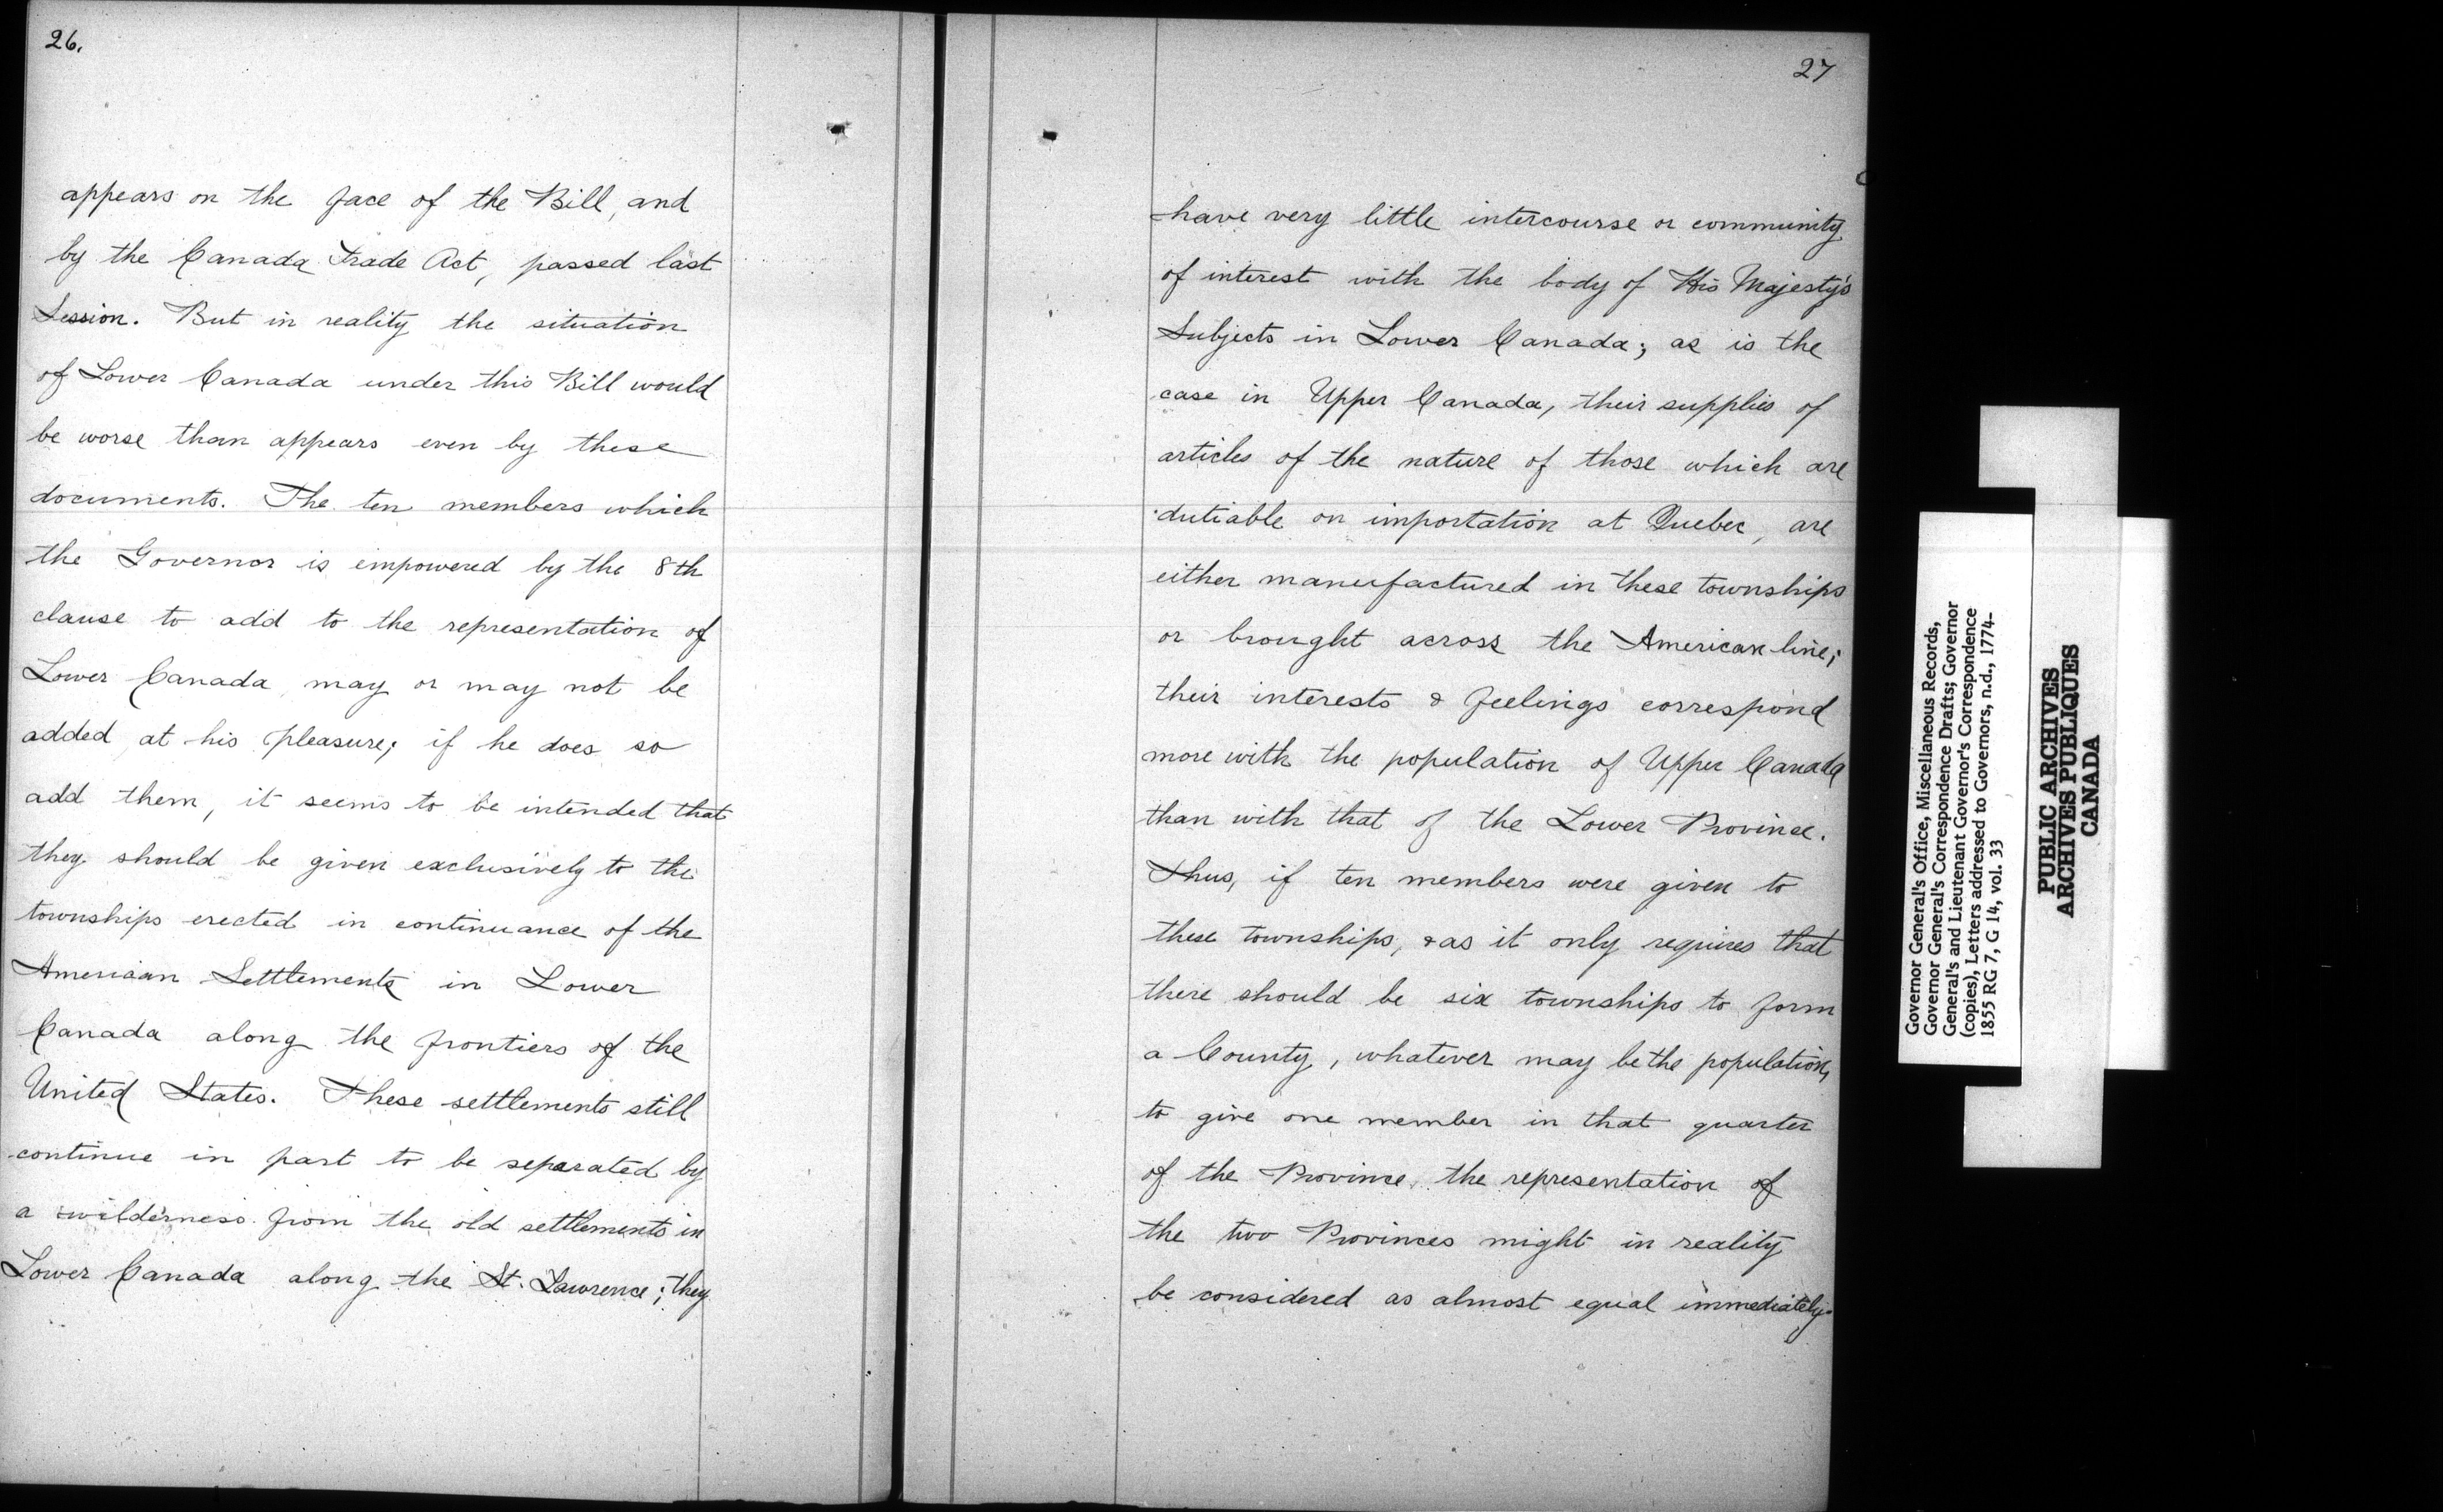 26.
appears on the face of the Bill, and
by the Canada Trade Act, passed last
Session. But in reality the situation
of Lower Canada under this Bill would
be worse than appears even by these
documents. The ten members which
the Governor is empowered by the 8th
clause to add to the representation of
Lower Canada, may or may not be
added at his pleasure; if he does so
add them, it seems to be intended that
they should be given exclusively to the
townships erected in continuance of the
American Settlements in Lower
Canada along the frontiers of the
United States. These settlements still
continue in part to be separated by
a wilderness from the old settlements in
Lower Canada along the St. Lawrence; they
27
have very little intercourse or community
of interest with the body of His Majesty's
Subjects in Lower Canada; as is the
case in Upper Canada, their supplies of
articles of the nature of those which are
dutiable on importation at Quebec, are
either manufactured in these townships
or brought across the American line;
their interests & feelings correspond
more with the population of Upper Canada
than with that of the Lower Province.
Thus, if ten members were given to
these townships, & as it only requires that
there should be six townships to form
a County, whatever may be the population,
to give one member in that quarter
of the Province, the representation of
the two Provinces might in reality
be considered as almost equal immediately.
Governor General's Office, Miscellaneous Records,
Governor General's Correspondence Drafts; Governor
General's and Lieutenant Governor's Correspondence
(copies), Letters addressed to Governors, n.d., 1774-
1855 RG 7, G 14, vol. 33
PUBLIC ARCHIVES
ARCHIVES PUBLIQUES
CANADA